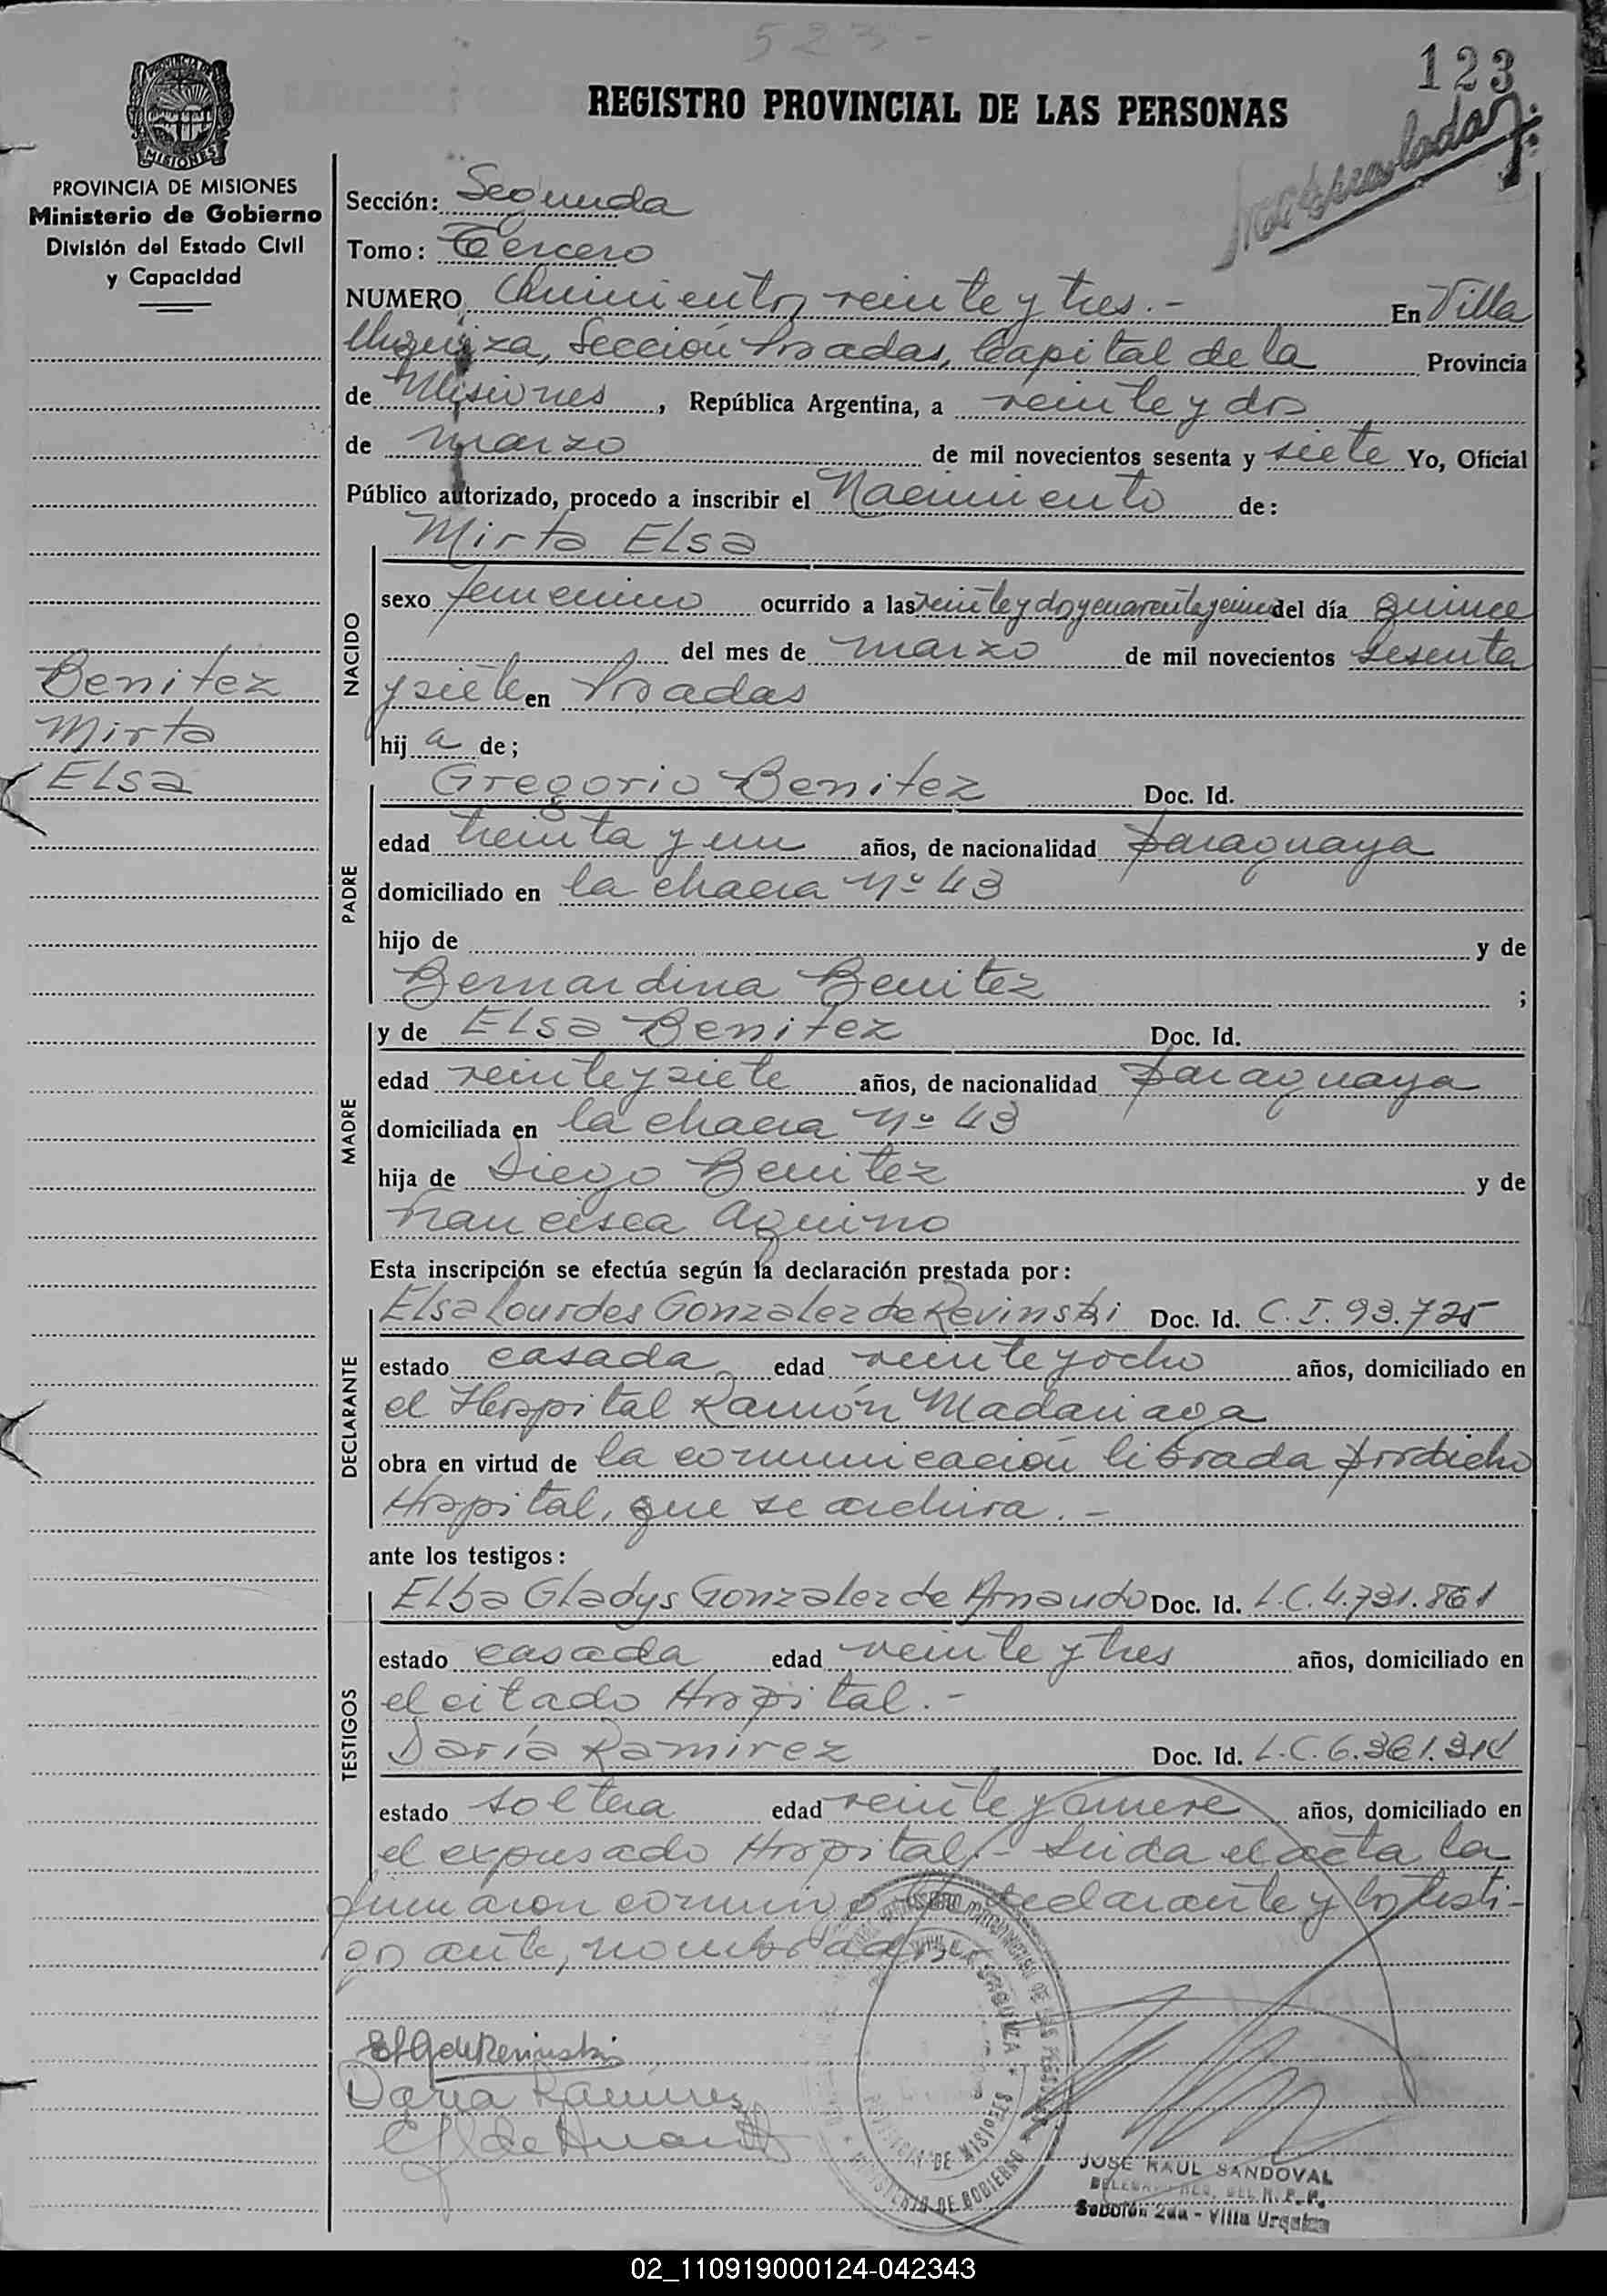 523-
123
REGISTRO PROVINCIAL DE LAS PERSONAS
MISIONES
PROVINCIA DE MISIONES
Ministerio de Gobierno
División del Estado Civil
y Capacidad
Sección: Segunda
Tomo: Tercero
NUMERO Quinientos veinte y tres.- En Villa
Urquiza, Sección Posadas, Capital de la Provincia
de Misiones, República Argentina, a veinte y dos
de marzo de mil novecientos sesenta y siete Yo, Oficial
Público autorizado, procedo a inscribir el Nacimiento de:
Mirta Elsa
NACIDO
sexo femenino ocurrido a las veinte y dos y cuarenta y cinco del día quince
del mes de marzo de mil novecientos sesenta
y siete en Posadas
hij a de;
Benitez
Mirta
Elsa
PADRE
Gregorio Benitez Doc. Id.
edad treinta y un años, de nacionalidad paraguaya
domiciliado en la chacra Nº 43
hijo de y de
Bernardina Benitez ;
MADRE
y de Elsa Benitez Doc. Id.
edad veinte y siete años, de nacionalidad paraguaya
domiciliada en la chacra Nº 43
hija de Diego Benitez y de
Francisca Aquino
Esta inscripción se efectúa según la declaración prestada por:
DECLARANTE
Elsa Lourdes Gonzalez de Revinski Doc. Id. C.I. 93.725
estado casada edad veinte y ocho años, domiciliado en
el Hospital Ramón Madariaga
obra en virtud de la comunicación librada por dicho
Hospital, que se archiva.-
ante los testigos:
TESTIGOS
Elba Gladys Gonzalez de Doc. Id. L.C. 4.731.861
estado casada edad veinte y tres años, domiciliado en
el citado Hospital.-
Daría Ramirez Doc. Id. L.C. 6.361.
estado soltera edad veinte y nueve años, domiciliado en
el expresado Hospital.- Leida el acta la
firmaron conmigo la declarante y los testi-
gos ante, nombrados
Daria Ramirez
JOSE RAUL SANDOVAL
Sección 2da - Villa Urquiza
02_110919000124-042343